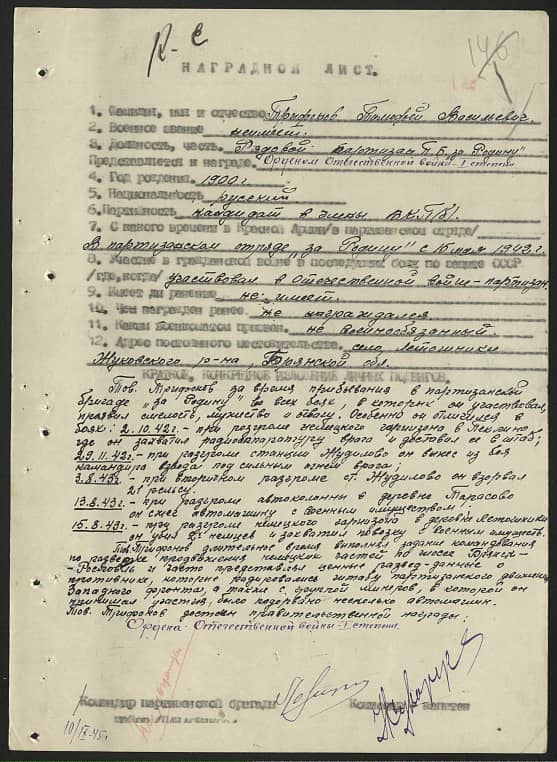 Р-е
146
НАГРАДНОЙ ЛИСТ.
1. Фамилия, имя и отчество Трифонов Тимофей Васильевич.
2. Военное звание не имеет.
3. Должность, часть. Рядовой партизан П.Б. "за Родину"
Представляется к награде. Орденом Отечественной войны-I степени
4. Год рождения 1900 г.
5. Национальность русский
6. Партийность кандидат в члены ВКП/б/.
7. С какого времени в Красной Армии /в партизанском отряде/
В партизанском отряде "за Родину" с 15 мая 1942 г.
8. Участие в гражданской войне и последующих боях по защите СССР
/где, когда/ участвовал в Отечественной войне-партизан.
9. Имеет ли ранение не имеет.
10. Чем награжден ранее не награждался
11. Каким военкоматом призван. не военнообязанный.
12. Адрес постоянного местожительства. село Летошники
Жуковского р-на, Брянской обл.
КРАТКОЕ, КОНКРЕТНОЕ ИЗЛОЖЕНИЕ ЛИЧНЫХ ПОДВИГОВ.
Тов. Трифонов за время прибывания в партизанской
бригаде "за Родину" во всех боях, в которых он участвовал,
проявил смелость, мужество и отвагу. Особенно он отличился в
боях: 2.10.42г- при разгроме немецкого гарнизона в
где он захватил радиоаппаратуру врага и доставил ее в штаб;
29.11.42г.- при разгроме станции Жудилово он вынес из боя
командира взвода под сильным огнем врага;
3.8.43г- при вторичном разгроме ст. Жудилово он взорвал
21 рельсу.
13.8.43г- при разгроме автоколонны в деревне Тарасово
он сжег автомашину с военным имуществом.
15.8.43г- при разгроме немецкого гарнизона в деревне Летошники
он убил немцев и захватил повозку с военным имуществ.
Тов. Трифонов длительное время выполнял задания командования
по разведке продвижения немецких частей по шоссе Брянск-
Рославль и часто представлял ценные развед-данные о
противнике, которые радировались штабу партизанского движения
Западного фронта, а также с группой минеров, в которой он
принимал участия, было подорвано несколько автомашин.
Тов. Трифонов достоин правительственной награды:
Ордена Отечественной войны-I степени.
Командир партизанской бригады
майор
Комиссар капитан
10/IX-45г.